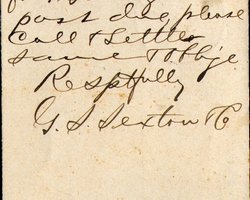 past due please
Call & Settle
same & oblige
Resptfully
G. S. Sexton & C